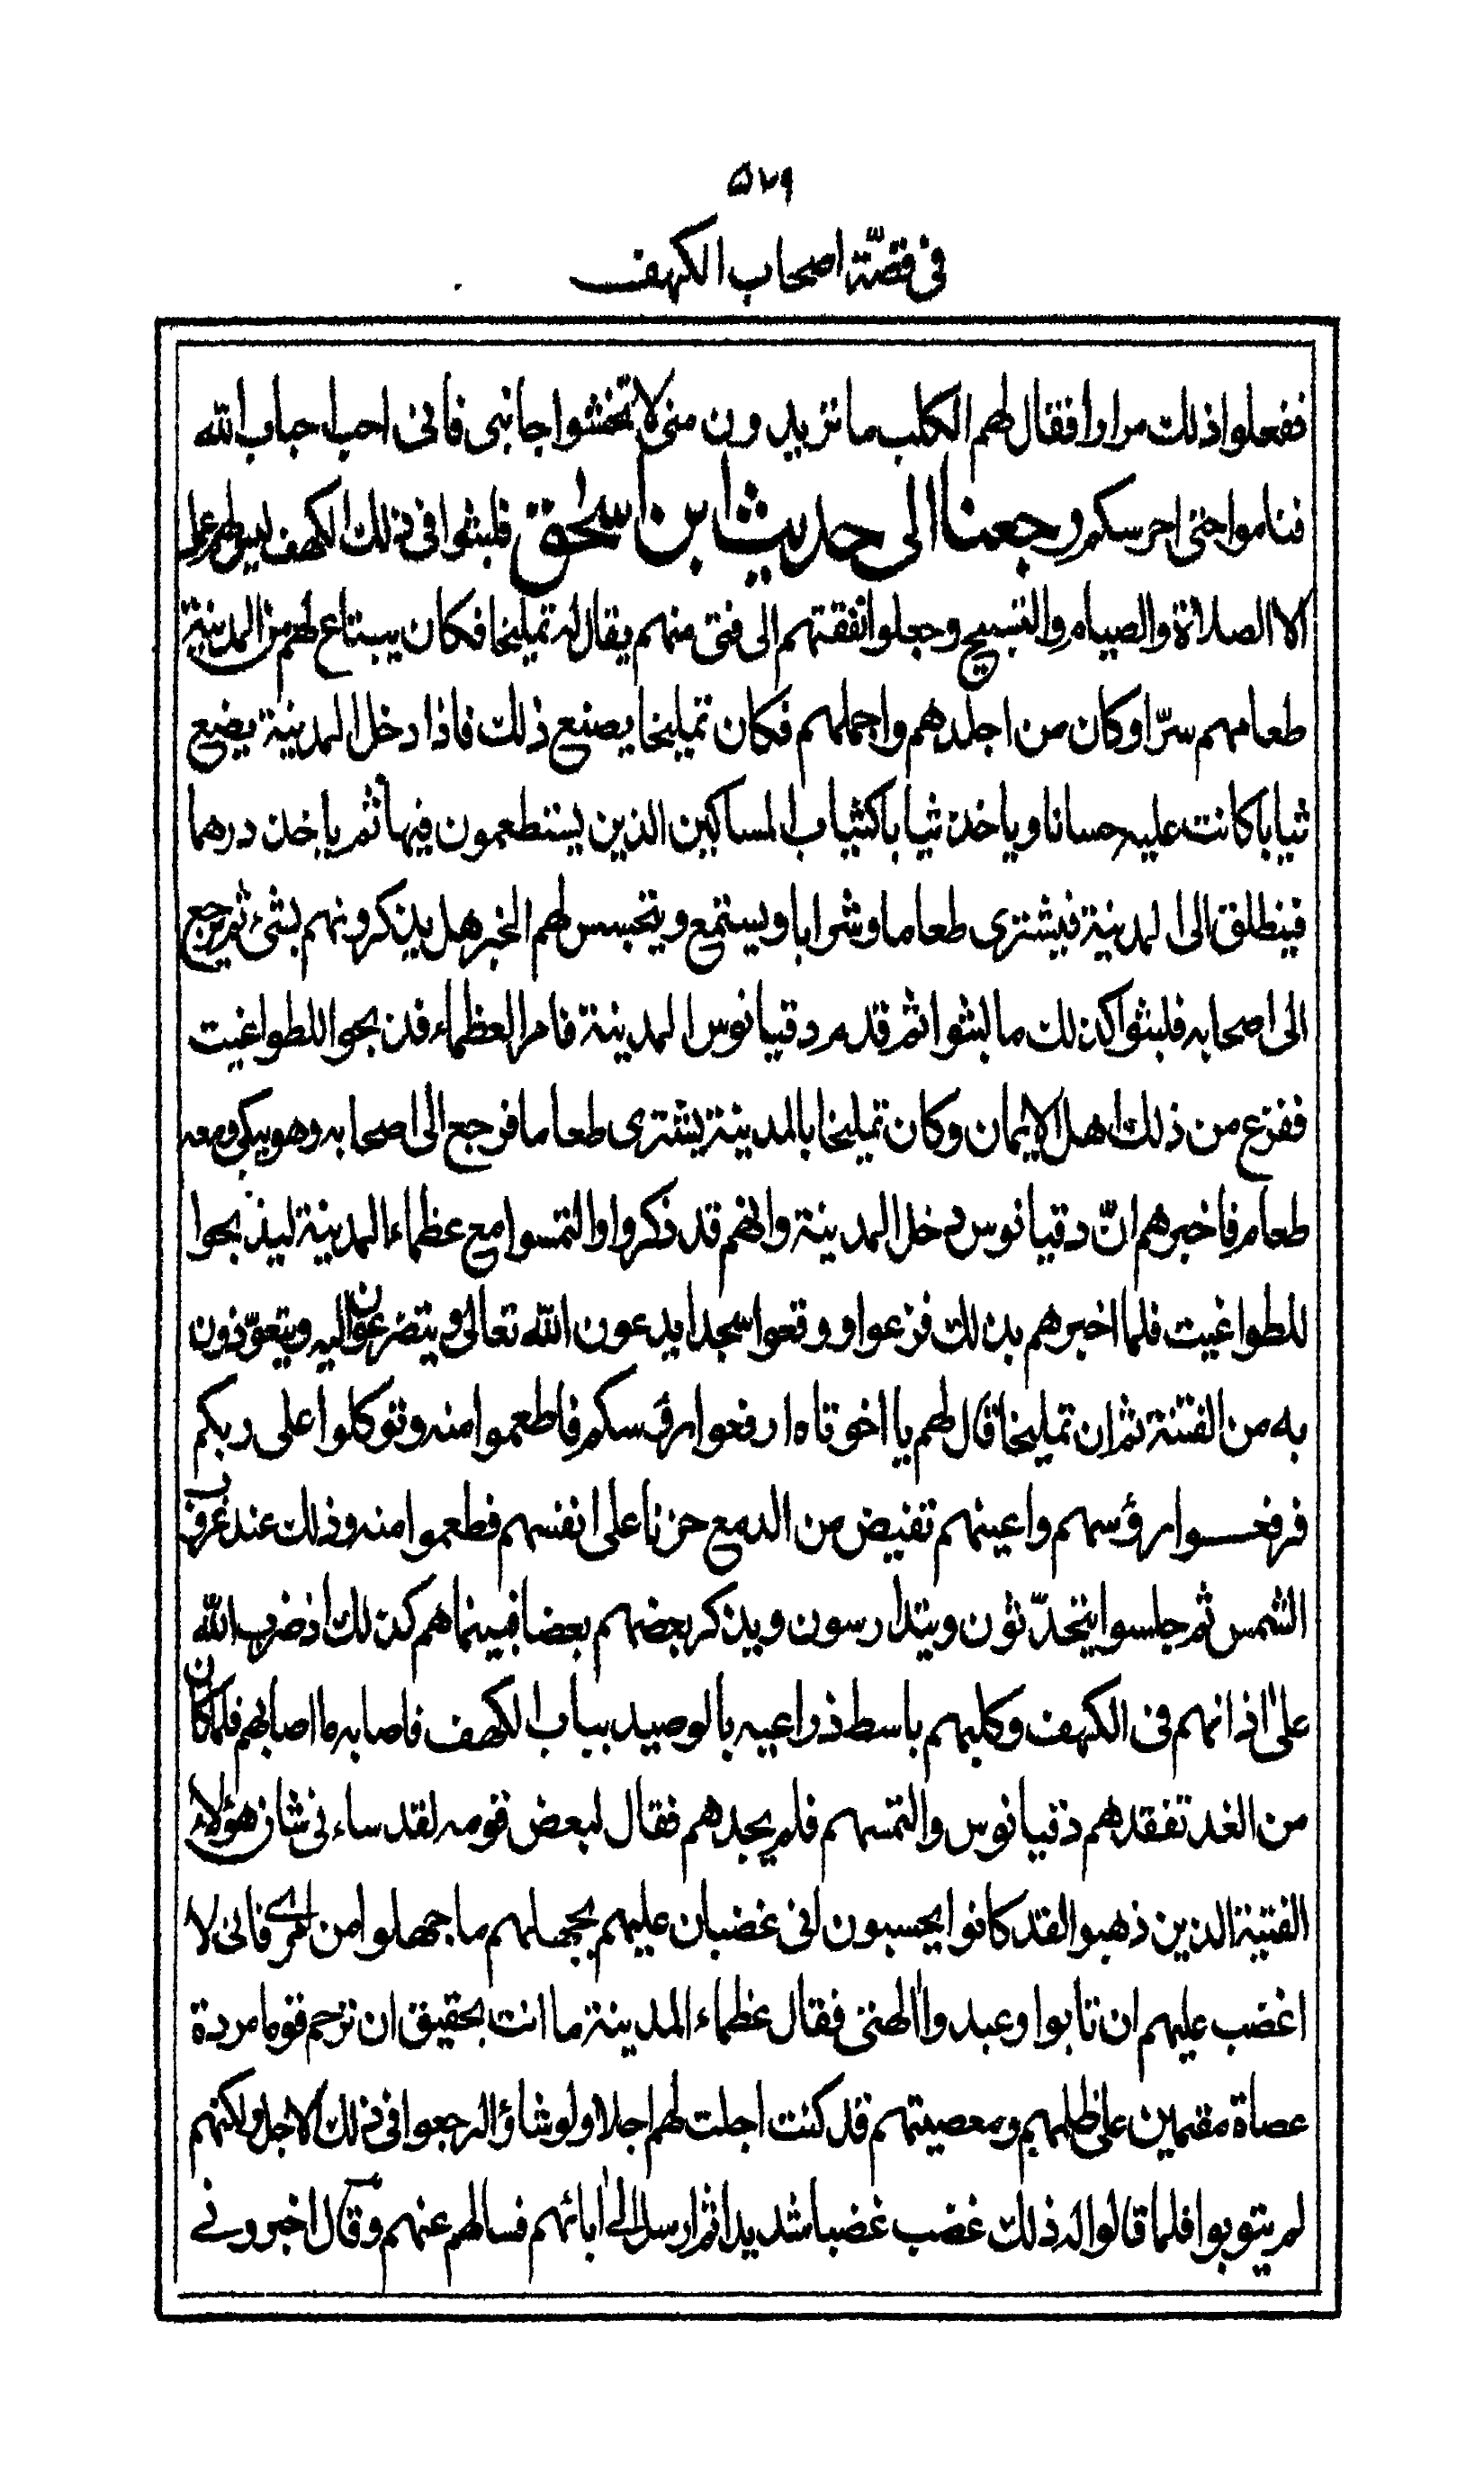 ٥٧٩
فى قصّة اصحاب الكهف
ففعلوا ذلك مرارا فقال لهم الكلب ما تريدون منى لا تخشوا جانبى فانى احب احباب الله
فناموا حتى احرسكم رجعنا الى حديث ابن اسحٰق فلبثوا فى ذلك الكهف ليس لهم عمل
الا الصلاة والصيام والتسبيح وجعلوا نفقتهم الى فتى منهم يقال له تمليخا فكان يبتاع لهم من المدينة
طعامهم سرّا وكان من اجلدهم واجملهم فكان تمليخا يصنع ذلك فاذا دخل المدينة يضع
ثيابا كانت عليه حسانا وياخذ ثيابا كثياب المساكين الذين يستطعمون فيها ثم ياخذ درهما
فينطلق الى المدينة فيشترى طعاما وشرابا ويستمع ويتجسس لهم الخبر هل يذكرونهم بشئ ثم يرجع
الى اصحابه فلبثوا كذلك ما لبثوا ثم قدم دقيانوس المدينة فامر العظماء فذبحوا للطواغيت
ففزع من ذلك اهل الايمان وكان تمليخا بالمدينة يشترى طعاما فرجع الى اصحابه وهو يبكى ومعه
طعام فاخبرهم انّ دقيانوس دخل المدينة وانهم قد ذكروا والتمسوا مع عظماء المدينة ليذبحوا
للطواغيت فلما اخبرهم بذلك فزعوا ووقعوا سجدا يدعون الله تعالى ويتضرعون اليه ويتعوّذون
به من الفتنة ثم ان تمليخا قال لهم يا اخوتاه ارفعوا رؤسكم فاطعموا منه وتوكلوا على ربكم
فرفعــوا رؤسهم واعينهم تفيض من الدمع حزنا على انفسهم فطعموا منه وذلك عند غروب
الشمس ثم جلسوا يتحدّثون ويتدارسون ويذكر بعضهم بعضا فبينما هم كذلك اذ ضرب الله
علىٰ اذانهم فى الكهف وكلبهم باسط ذراعيه بالوصيد بباب الكهف فاصابه ما اصابهم فلما كان
من الغد تفقدهم دقيانوس والتمسهم فلم يجدهم فقال لبعض قومه لقد ساءنى شان هؤلاء
الفتية الذين ذهبوا لقد كانوا يحسبون انى غضبان عليهم بجهلهم ما جهلوا من امرى فانى لا
اغضب عليهم ان تابوا وعبدوا الهتى فقال عظماء المدينة ما انت بحقيق ان ترحم قوما مردة
عصاة مقيمين على ظلمهم ومعصيتهم قد كنت اجلت لهم اجلا ولو شاؤا لرجعوا فى ذلك الاجل ولكنهم
لم يتوبوا فلما قالوا له ذلك غضب غضبا شديدا ثم ارسل الىٰ ابائهم فسالهم عنهم وقال اخبرونى